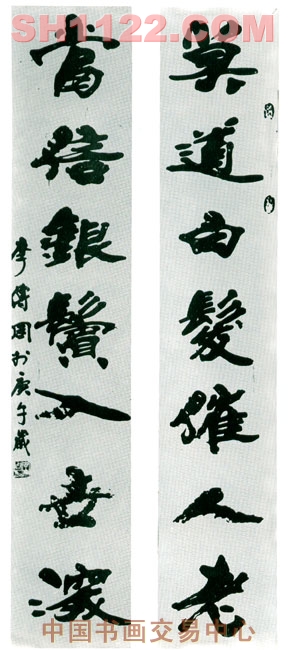 SH1122.COM
莫道白髮催人老
當悟銀鬢入世深
李傳周於庚午歲
中国书画交易中心